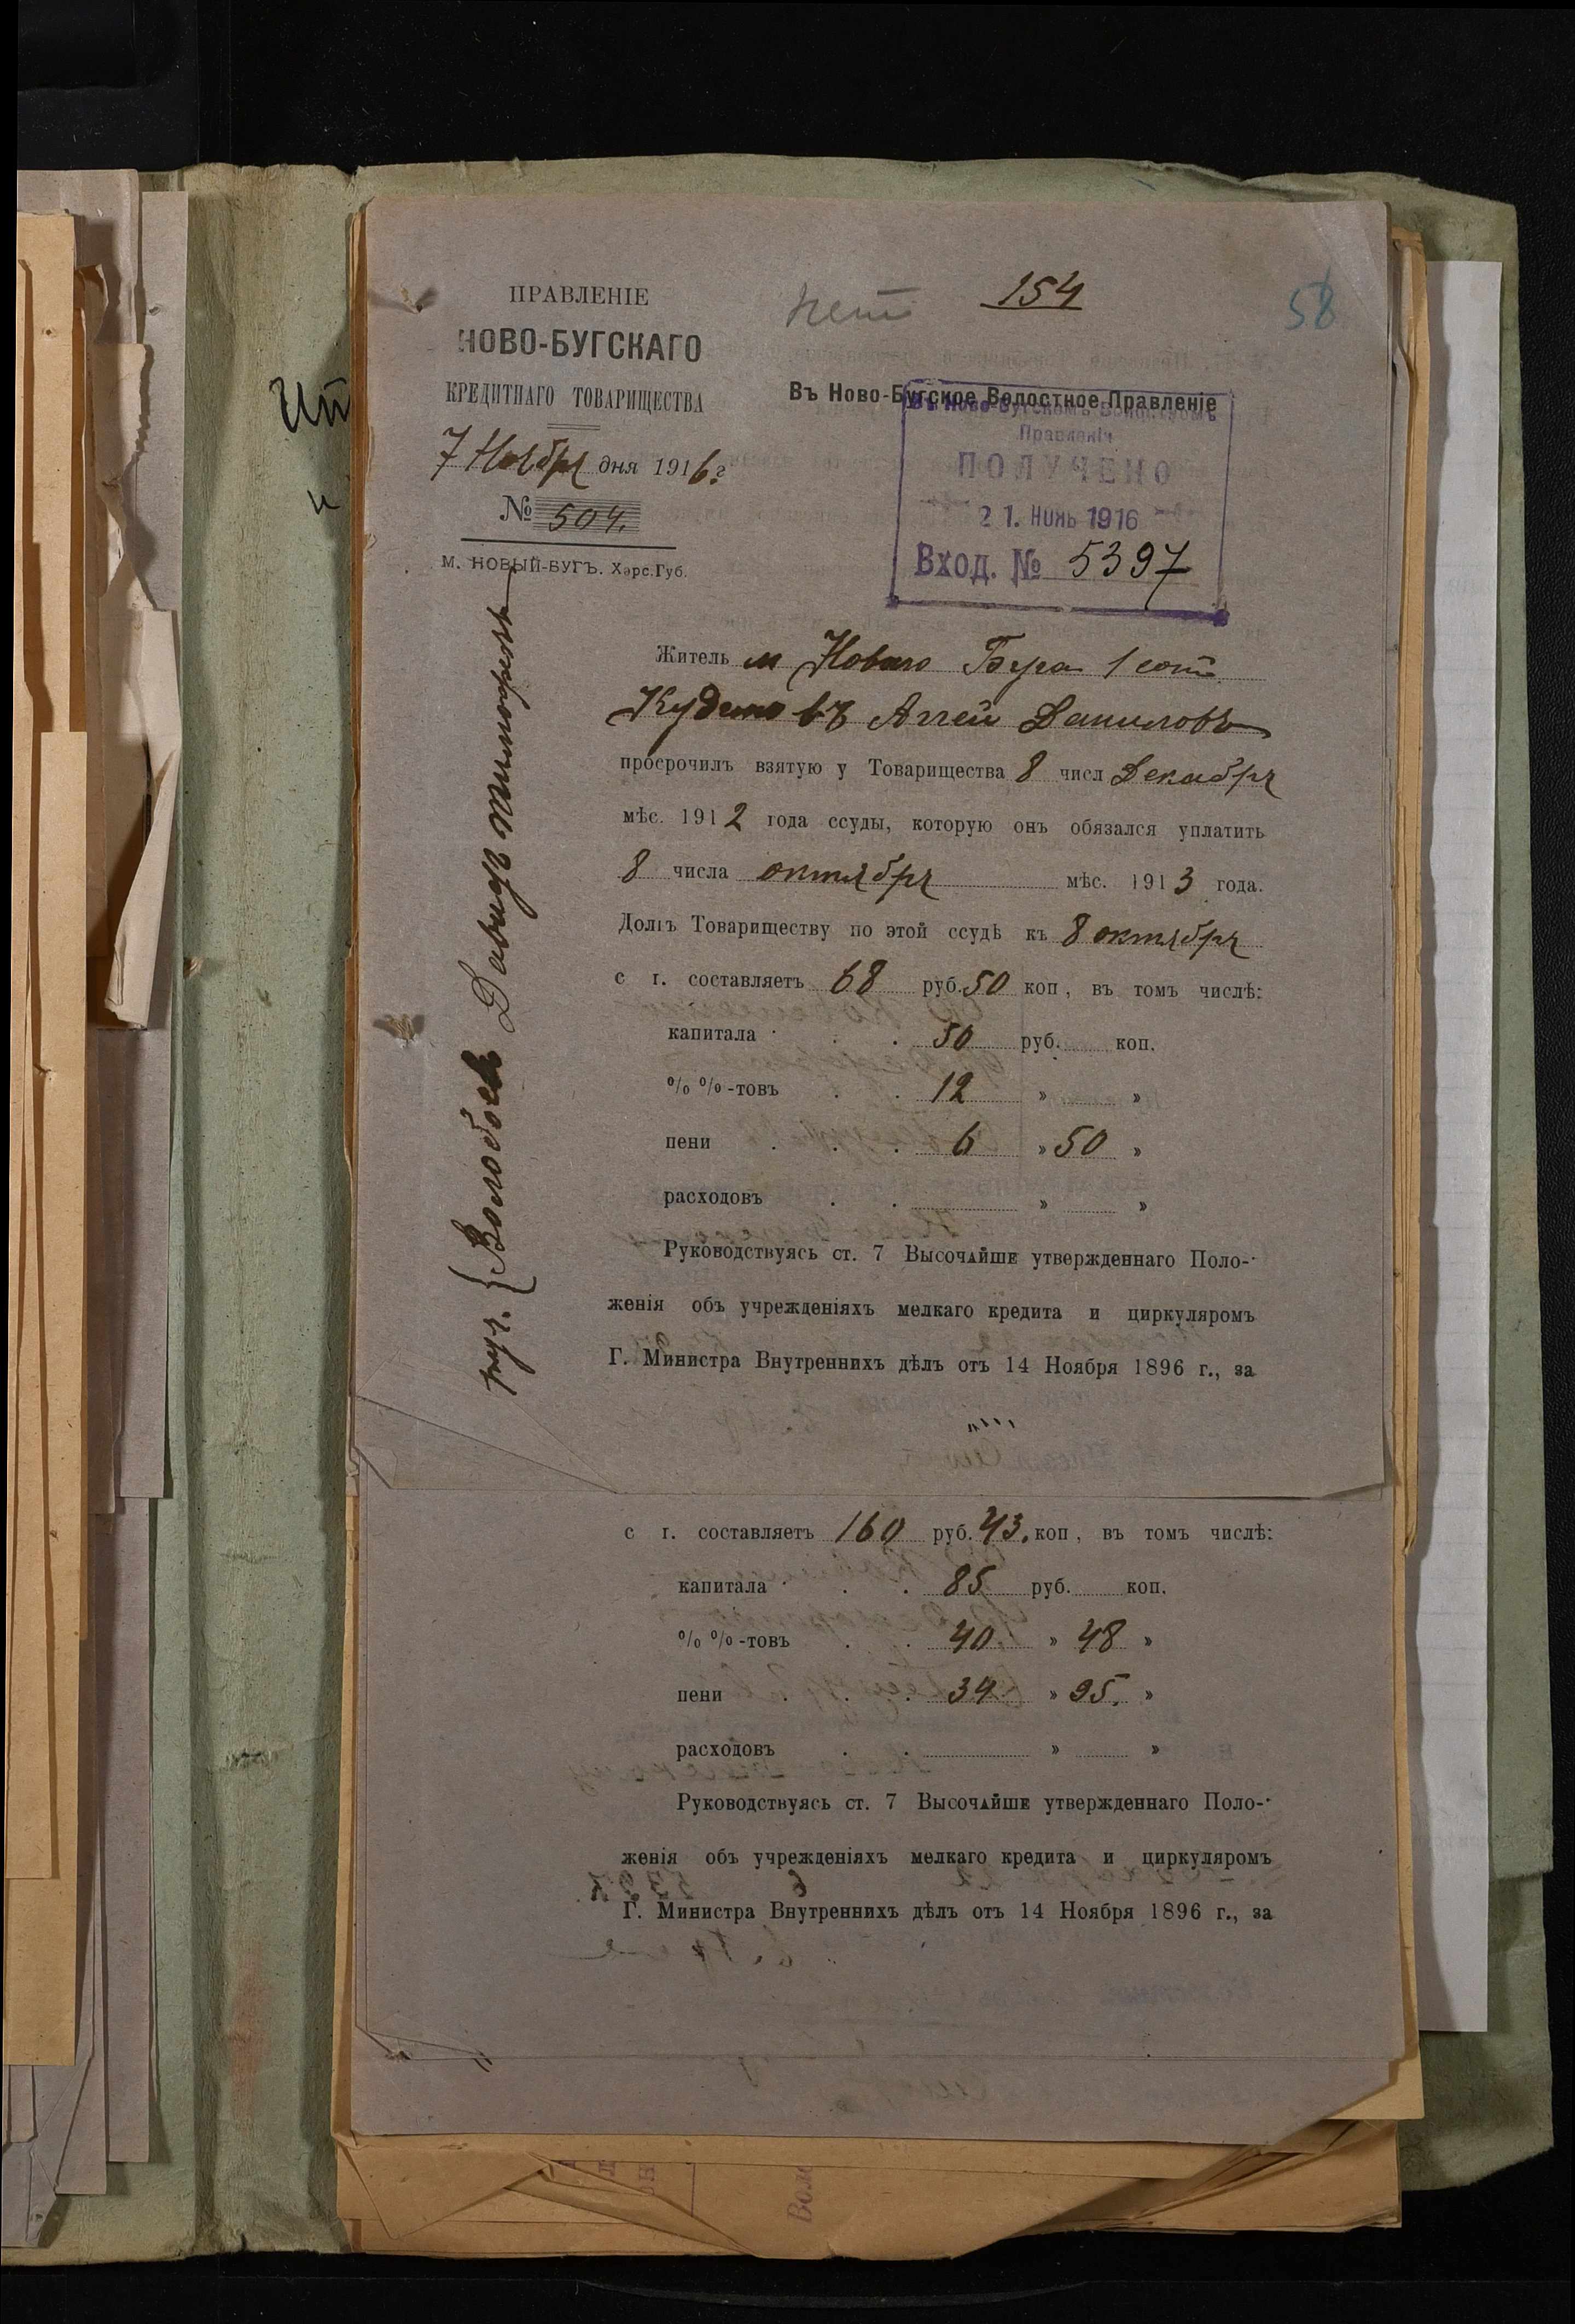 нетъ
154
58
ПРАВЛЕНІЕ
НОВО-БУГСКАГО
КРЕДИТНАГО ТОВАРИЩЕСТВА
7 Ноября дня 1916 г
№ 504.
М. НОВЫЙ-БУГЪ. Хэрс.Губ.
Въ Ново-Бугское Волостное Правленіе
Въ Ново-Бугскомъ Волостномъ
Правленіи
ПОЛУЧЕНО
2 1. НОЯЬ 1916
Вход. № 5397
Житель м Новаго Буга 1 сот
Аггей Даниловъ
просрочилъ взятую у Товарищества 8 числ Декабря
мѣс. 1912 года ссуды, которую онъ обязался уплатить
8 числа октября мѣс. 1913 года.
Долгъ Товариществу по этой ссудѣ къ 8 октября
с г. составляетъ 68 руб. 50 коп, въ томъ числѣ:
капитала . . 50 руб. коп.
% %-товъ . . 12 » »
пени . . . 6 » 50 »
расходовъ . . » »
Руководствуясь ст. 7 Высочайше утвержденнаго Поло-
женія объ учрежденіяхъ мелкаго кредита и циркуляромъ
Г. Министра Внутреннихъ дѣлъ отъ 14 Ноября 1896 г., за
пор. Давидъ
с г. составляетъ 160 руб. 43. коп, въ томъ числѣ:
капитала . . 85 руб. коп.
% %-товъ . . 40. » 48 »
пени . . . 34 » 95. »
расходовъ . . » »
Руководствуясь ст. 7 Высочайше утвержденнаго Поло-
женія объ учрежденіяхъ мелкаго кредита и циркуляромъ
Г. Министра Внутреннихъ дѣлъ отъ 14 Ноября 1896 г., за